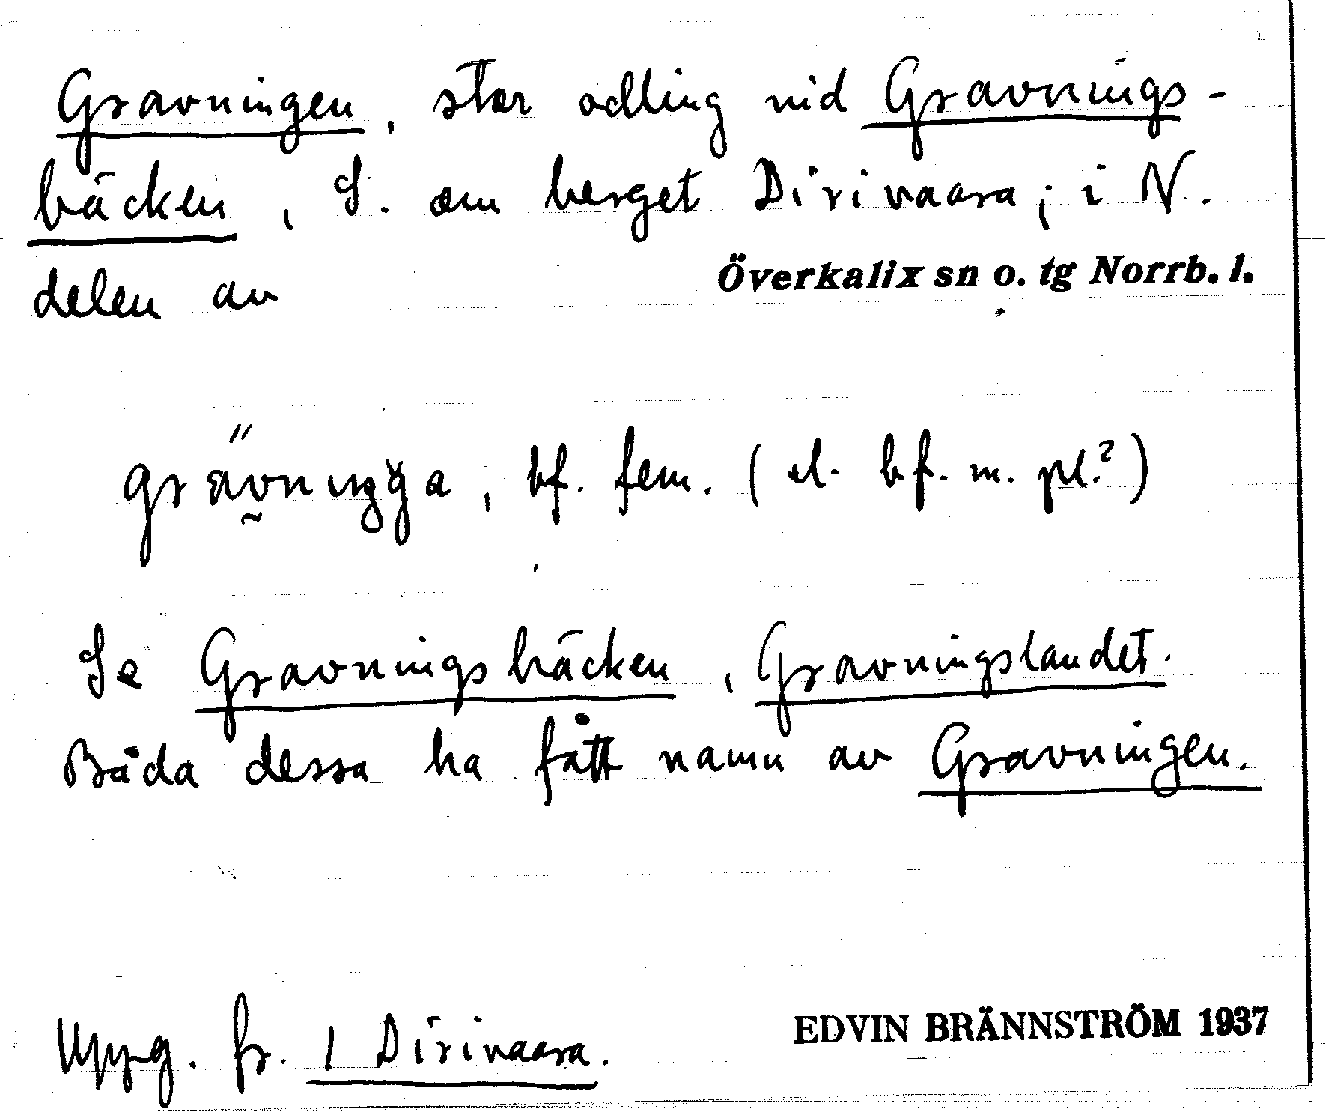 Gravningen, stor odling vid Gravnings-
bäcken, S. om berget Dirivaara; i N.
delen av Överkalix sn o. tg Norrb. l.
bf. fem. (el. bf. m. pl.?)
Se Gravningsbäcken, Gravningslandet.
Båda dessa ha fått namn av Gravningen.
Uppg. fr. 1 Dirivaara. EDVIN BRÄNNSTRÖM 1937